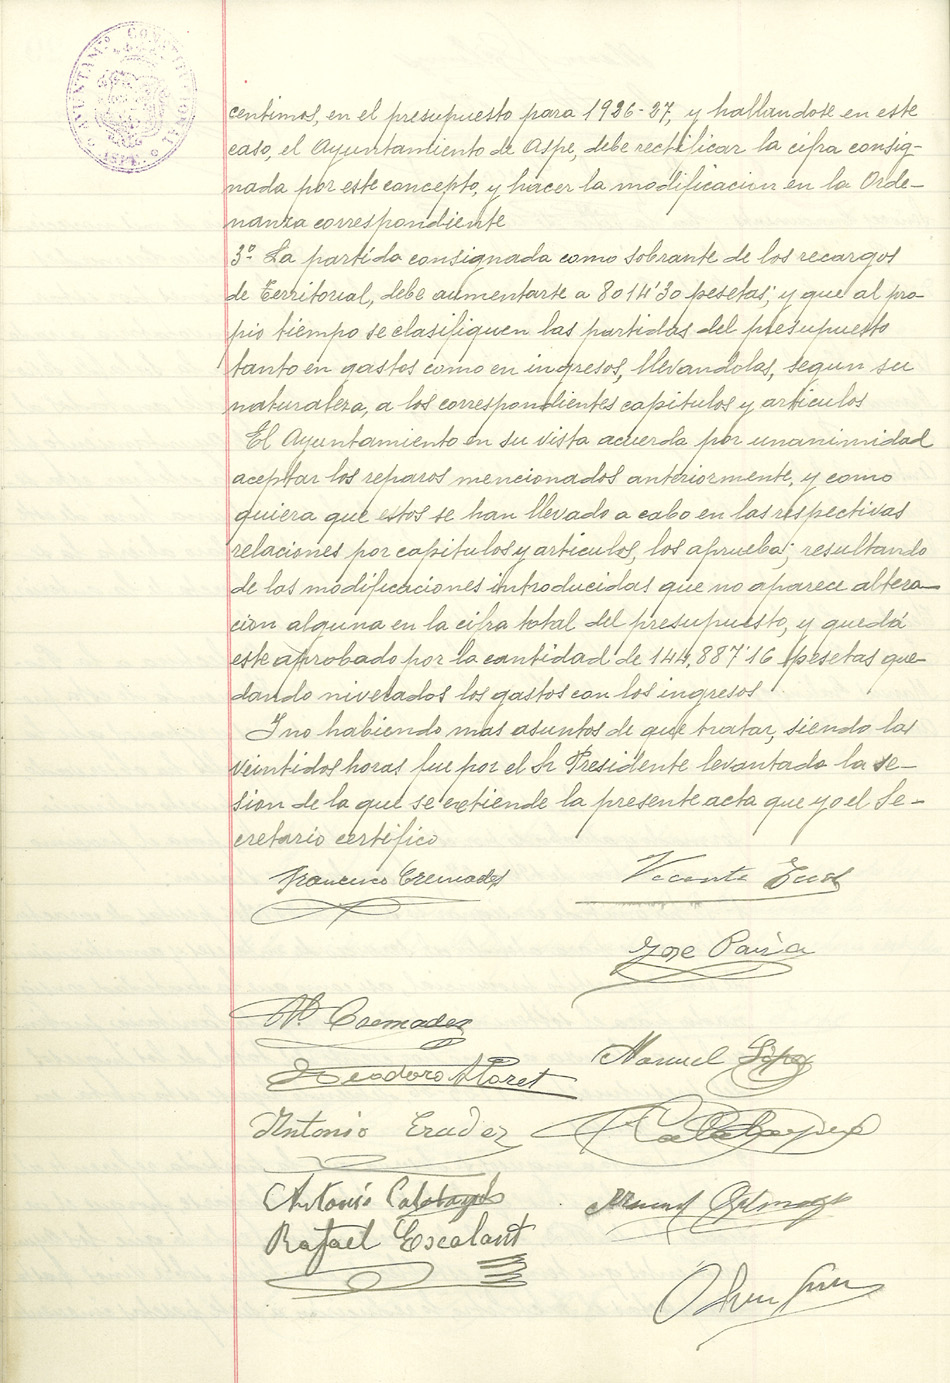 AYUNTAM.º CONSTITUCIONAL
ASPE
centimos, en el presupuesto para 1926-27, y hallandose en este
caso, el Ayuntamiento de Aspe, debe rectificar la cifra consig-
nada por este concepto, y hacer la modificacion en la Orde-
nanza correspondiente
3º La partida consignada como sobrante de los recargos
de Territorial, debe aumentarte a 8014'30 pesetas; y que al pro-
pio tiempo se clasifiquen las partidas del presupuesto
tanto en gastos como en ingresos, llevandolas, segun su
naturaleza, a los correspondientes capitulos y articulos
El Ayuntamiento en su vista acuerda por unanimidad
aceptar los reparos mencionados anteriormente, y como
quiera que estos se han llevado a cabo en las respectivas
relaciones por capitulos y articulos, los aprueba; resultando
de las modificaciones introducidas que no aparece altera-
cion alguna en la cifra total del presupuesto, y queda
este aprobado por la cantidad de 144,887'16 pesetas que-
dando nivelados los gastos con los ingresos
Y no habiendo mas asuntos de que tratar, siendo las
veintidos horas fue por el Sr Presidente levantada la se-
sion de la que se extiende la presente acta que yo el Se-
cretario certifico
Francisco Cremades
Vicente
Jose
Cremades
Manuel López
Teodoro Alloret
Antonio
Calatayud
Antonio Calatayud
Manuel
Rafael Escolant